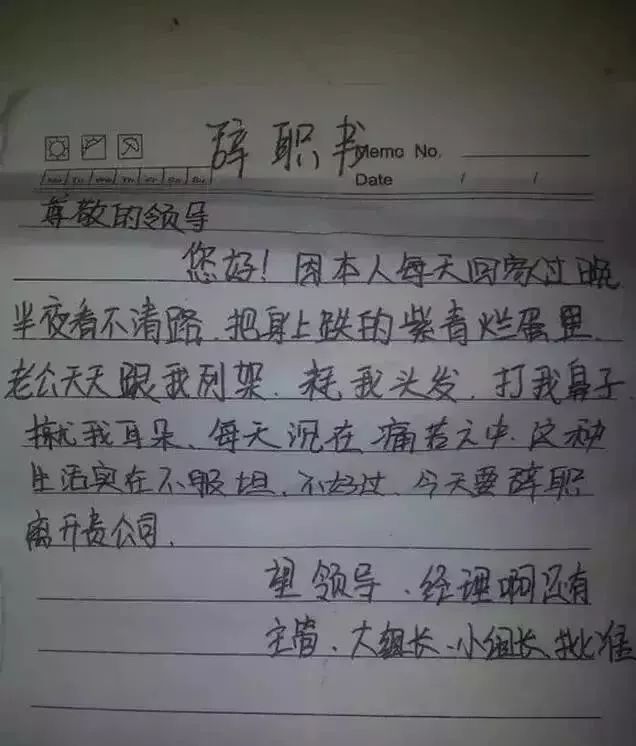 辞职书
Memo No.
Date / /
尊敬的领导
您好！因本人每天回家过晚
半夜看不清路、把身上跌的紫青烂蛋里、
老公天天跟我列架、耗我头发、打我鼻子、
揪我耳朵、每天沉在痛苦之中、这种
生活实在不服坦、不好过、今天要辞职
离开贵公司、
望领导、经理啊还有
主管、大组长、小组长、批准